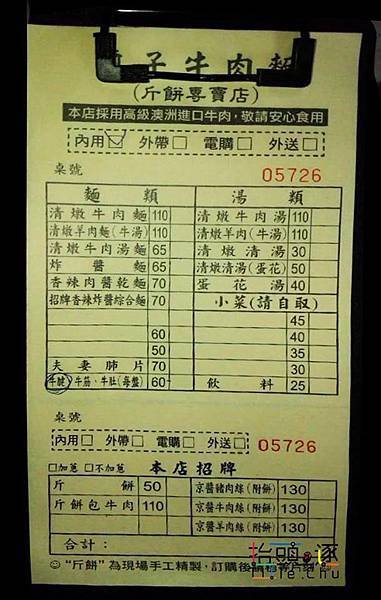 子牛肉麵
(斤餅專賣店)
本店採用高級澳洲進口牛肉，敬請安心食用
內用☑ 外帶□ 電購□ 外送□
桌號 05726
麵類 湯類
清燉牛肉麵 110 清燉牛肉湯 110
清燉羊肉麵(牛湯) 110 清燉羊肉(牛湯) 110
清燉牛肉湯麵 65 清燉清湯 30
炸醬麵 65 清燉清湯(蛋花) 50
香辣肉醬乾麵 70 蛋花湯 40
招牌香辣炸醬綜合麵 70 小菜(請自取)
45
60 40
50 35
夫妻肺片 70 30
牛腱、牛筋、牛肚(每盤) 60 飲料 25
桌號
內用□ 外帶□ 電購□ 外送□ 05726
□加蔥 □不加蔥 本店招牌
斤餅 50 京醬豬肉絲(附餅) 130
斤餅包牛肉 110 京醬牛肉絲(附餅) 130
京醬羊肉絲(附餅) 130
合計：
☺"斤餅"為現場手工精製，訂購後請稍等片刻
抬頭逐
.Ie.Chu